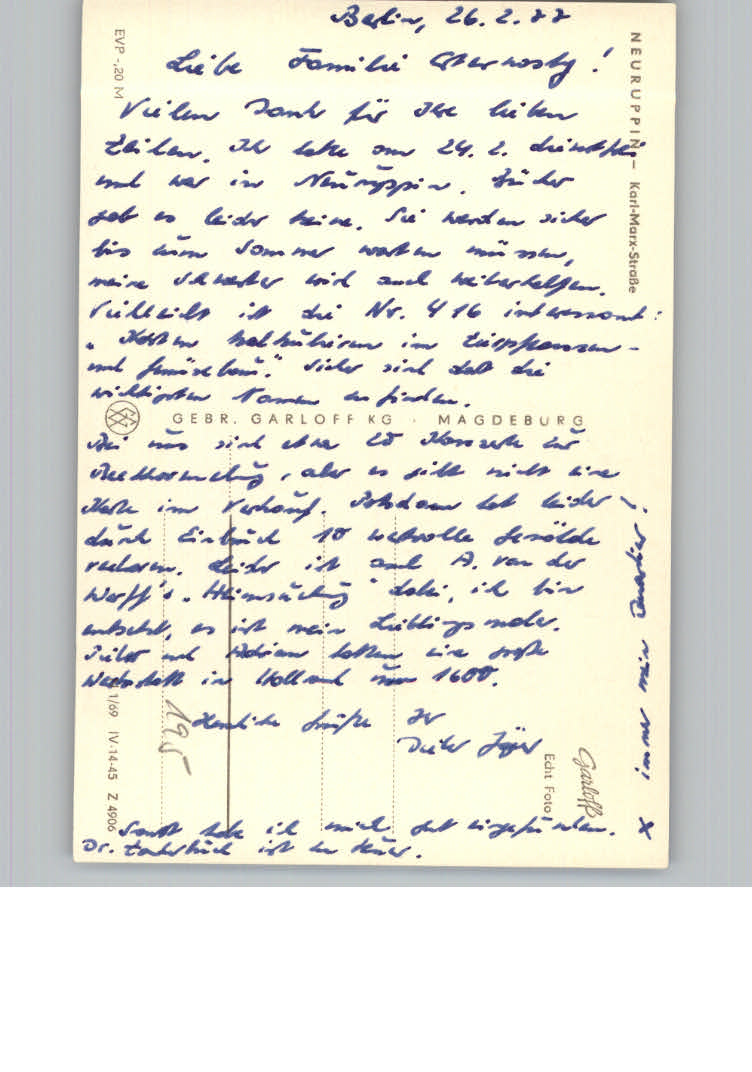 Berlin, 26. 2. 77
Liebe Familie !
Vielen Dank für Ihre lieben
Zeilen. Ich hatte am 24. 2. dienstfrei
und war in Neuruppin. Bücher
gab es leider keine. Sie werden sicher
bis zum Sommer warten müssen,
meine Schwester wird auch weiterhelfen.
Vielleicht ist die Nr. 416 interessant:
" Kosten kalkulieren im Zierpflanzen-
und Gemüsebau." Sicher sind dort die
wichtigsten Namen zu finden.
GEBR. GARLOFF KG · MAGDEBURG
Bei uns sind etwa 20 Konzerte zur
, aber es gibt nicht eine
Karte im Verkauf. Potsdam hat leider
durch Einbruch 10 wertvolle Gemälde
verloren. Leider ist auch A. van der
Werff's "Heimsuchung" dabei, ich bin
entsetzt, es ist mein Lieblingsmaler.
Pieter und Adrian hatten eine große
Werkstatt in Holland um 1600.
Herzliche Grüße Ihr
Dieter Jäger
Sonst habe ich mich gut eingefunden.
Dr. ist zu Hause.
EVP -,20 M
NEURUPPIN — Karl-Marx-Straße
1/69 IV-14-45 Z 4906
195
Echt Foto
Garloff